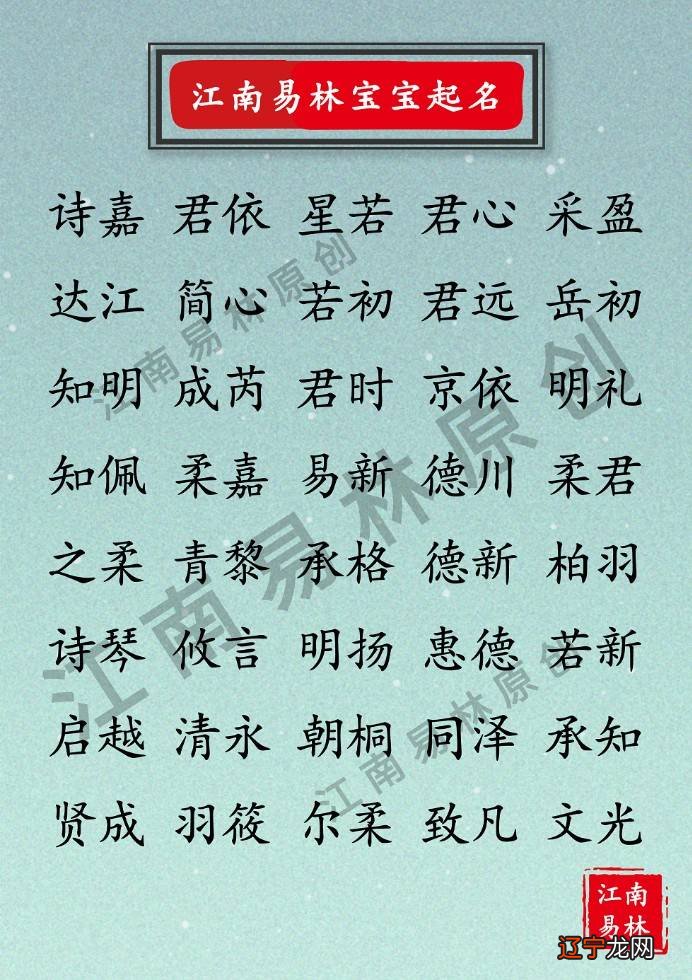 江南易林宝宝起名
诗嘉 君依 星若 君心 采盈
达江 简心 若初 君远 岳初
知明 成芮 君时 京依 明礼
知佩 柔嘉 易新 德川 柔君
之柔 青黎 承格 德新 柏羽
诗琴 攸言 明扬 惠德 若新
启越 清永 朝桐 同泽 承知
贤成 羽筱 尔柔 致凡 文光
江南易林原创
江南易林原创
江南易林原创
江南
易林
辽宁龙网